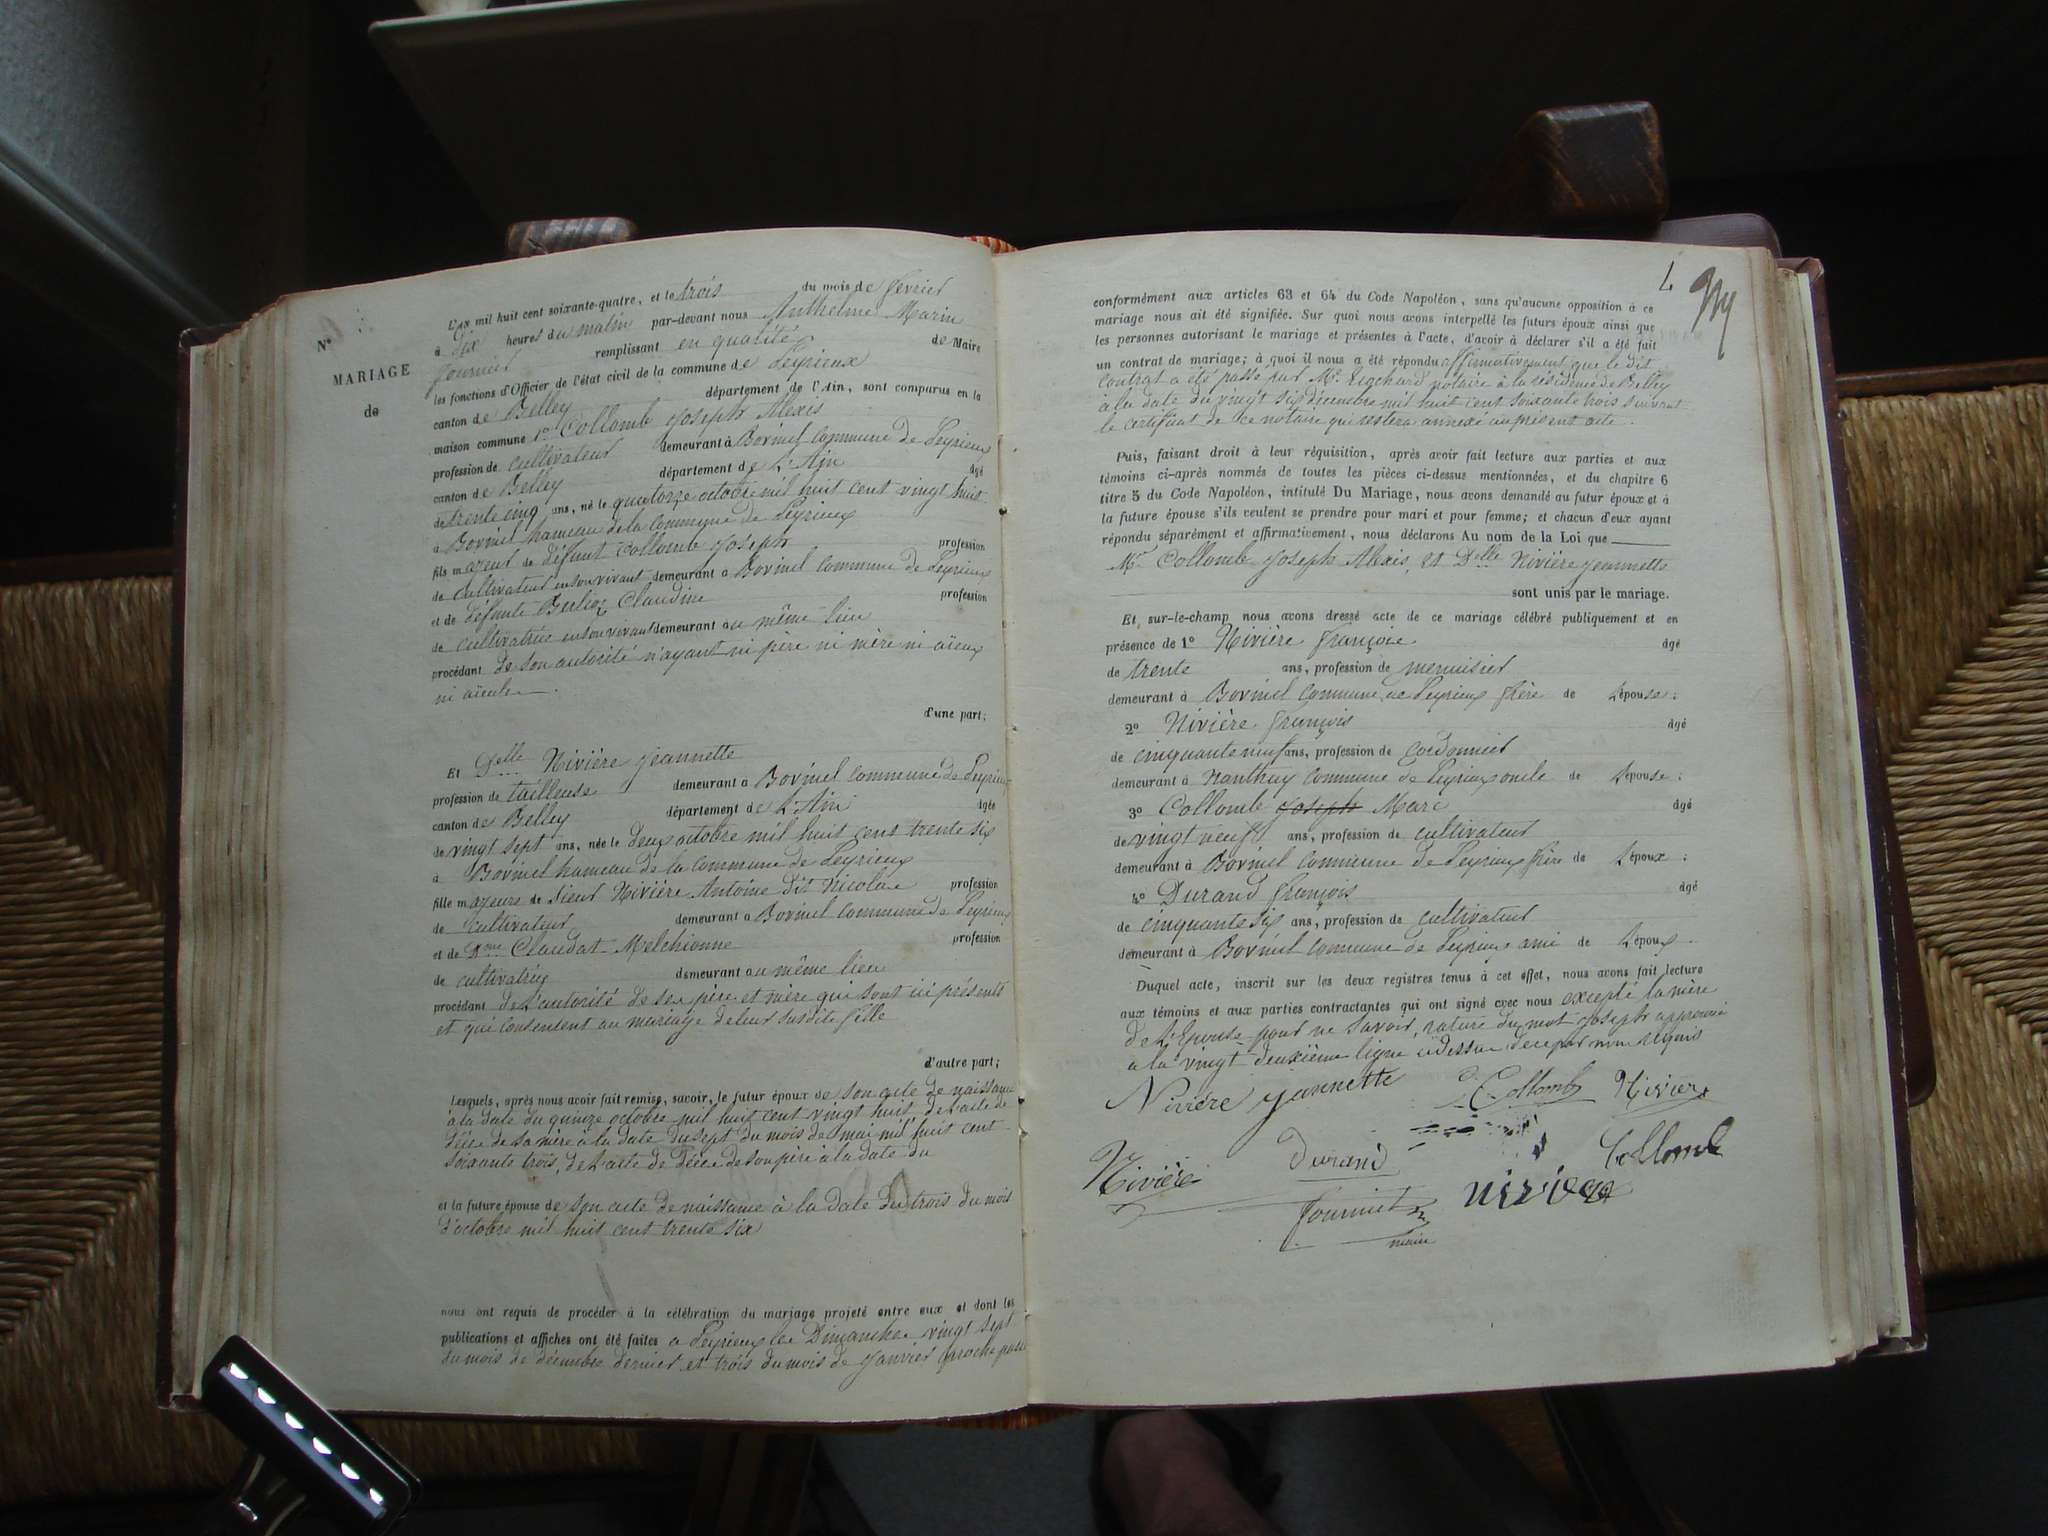 N°
MARIAGE
de
L'an mil huit cent soixante-quatre, et le trois du mois de février
à dix heures du matin par-devant nous Anthelme Marin
fournier remplissant en qualité de Maire
les fonctions d'Officier de l'état civil de la commune de Peyrieux
canton de Belley département de l'Ain, sont comparus en la
maison commune 1° Collomb Joseph Alexis
profession de cultivateur demeurant à Bovinel commune de Peyrieux
canton de Belley département de L'Ain âgé
de trente cinq ans, né le quatorze octobre mil huit cent vingt huit
à Bovinel hameau de la commune de Peyrieux
fils majeur de défunt Collomb Joseph profession
de cultivateur en son vivant demeurant à Bovinel commune de Peyrieux
et de défunte Berlioz Claudine profession
de cultivatrice en son vivant demeurant au même lieu
procédant de son autorité n'ayant ni père ni mère ni aïeux
ni aïeules.
d'une part;
Et Delle Nivière Jeannette
profession de tailleuse demeurant à Bovinel commune de Peyrieux
canton de Belley département de L'Ain âgée
de vingt sept ans, née le deux octobre mil huit cent trente six
à Bovinel hameau de la commune de Peyrieux
fille majeure de sieur Nivière Antoine dit Nicolas profession
de cultivateur demeurant à Bovinel commune de Peyrieux
et de Dame Claudat Melchionne profession
de cultivatrice demeurant au même lieu
procédant de L'autorité de ses père et mère qui sont ici présents
et qui consentent au mariage de leur susdite fille
d'autre part;
Lesquels, après nous avoir fait remise, savoir, le futur époux de son acte de naissance
à la date du quinze octobre mil huit cent vingt huit, de l'acte de
décès de sa mère à la date du sept du mois de mai mil huit cent
soixante trois, de L'acte de décès de son père à la date du
et la future épouse de son acte de naissance à la date du trois du mois
d'octobre mil huit cent trente six
nous ont requis de procéder à la célébration du mariage projeté entre eux et dont les
publications et affiches ont été faites à Peyrieux les Dimanches vingt sept
du mois de décembre dernier et trois du mois de Janvier proche passé
L
conformément aux articles 63 et 64 du Code Napoléon, sans qu'aucune opposition à ce
mariage nous ait été signifiée. Sur quoi nous avons interpellé les futurs époux ainsi que
les personnes autorisant le mariage et présentes à l'acte, d'avoir à déclarer s'il a été fait
un contrat de mariage; à quoi il nous a été répondu affirmativement que le dit
contrat a été passé par Me notaire à la résidence de Belley
à la date du vingt six décembre mil huit cent soixante trois suivant
le certificat de ce notaire qui restera annexé au présent acte.
Puis, faisant droit à leur réquisition, après avoir fait lecture aux parties et aux
témoins ci-après nommés de toutes les pièces ci-dessus mentionnées, et du chapitre 6
titre 5 du Code Napoléon, intitulé Du Mariage, nous avons demandé au futur époux et à
la future épouse s'ils veulent se prendre pour mari et pour femme; et chacun d'eux ayant
répondu séparément et affirmativement, nous déclarons Au nom de la Loi que
Mr Collomb Joseph Alexis, et Delle Nivière Jeannette
sont unis par le mariage.
Et, sur-le-champ nous avons dressé acte de ce mariage célébré publiquement et en
présence de 1° Nivière françois âgé
de trente ans, profession de menuisier
demeurant à Bovinel commune de Peyrieux frère de L'épouse;
2° Nivière françois âgé
de cinquante neuf ans, profession de cordonnier
demeurant à Nanthuy commune de Peyrieux oncle de L'épouse;
3° Collomb Joseph Marc âgé
de vingt neuf ans, profession de cultivateur
demeurant à Bovinel commune de Peyrieux frère de L'époux;
4° Durand françois âgé
de cinquante six ans, profession de cultivateur
demeurant à Bovinel commune de Peyrieux ami de L'époux.
Duquel acte, inscrit sur les deux registres tenus à cet effet, nous avons fait lecture
aux témoins et aux parties contractantes qui ont signé avec nous excepté la mère
de L'Epouse pour ne savoir, rature du mot Joseph approuvée
à la vingt deuxième ligne
Nivière Jannette Collomb Nivière
Nivière Durand Collomb
fournier nivière
maire